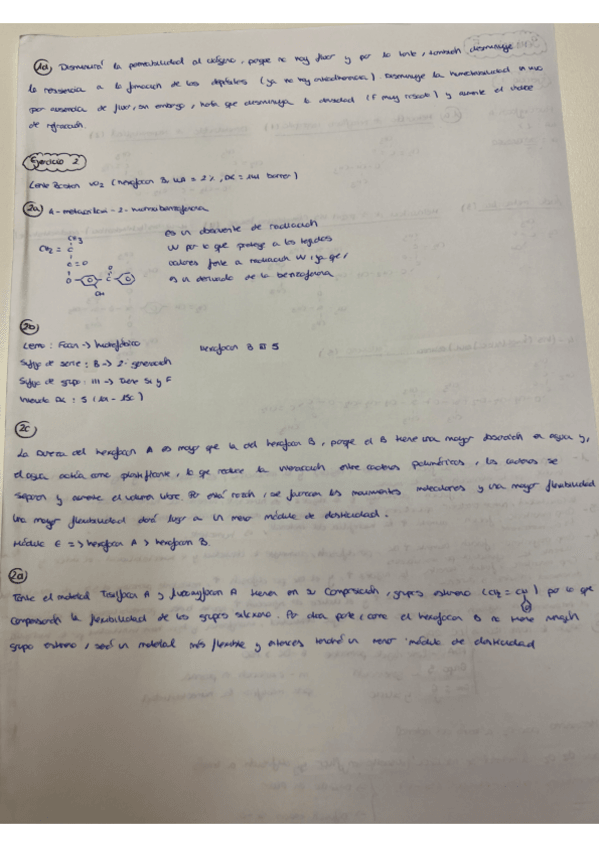 1d) Disminuirá la permeabilidad al oxígeno, porque no hay flúor y por lo tanto, también disminuye
la resistencia a la formación de los depósitos (ya no hay interferencia). Disminuye la humectabilidad
por ausencia de flúor, sin embargo, hará que disminuya la densidad (F muy pesado) y aumente el índice
de refracción.
Ejercicio 2
Lente Boston XO2 (hexafocon B, = 2%, DK = 141 barrer)
2a) 4-metacriloxi-2-hidroxibenzofenona
CH3
CH2 = C
C = O
O
O
C
OH
es un absorbente de radiación
UV por lo que protege a los tejidos
oculares frente a radiación UV, ya que,
es un derivado de la benzofenona
2b)
Lente: Focon -> hidrofóbico
hexafocon B III 5
Sufijo de serie: B -> 2ª generación
Sufijo de grupo: III -> Tiene Si y F
Intervalo DK: 5 (
2c)
La dureza del hexafocon A es mayor que la del hexafocon B, porque el B tiene una mayor absorción en agua y,
el agua actúa como plastificante, lo que reduce la interacción entre cadenas poliméricas, las cadenas se
separan y aumenta el volumen libre. Por esta razón, se favorecen los movimientos moleculares y una mayor flexibilidad
Una mayor flexibilidad dará lugar a un menor módulo de elasticidad.
Módulo E => hexafocon A > hexafocon B.
2d)
Tanto el material A y A tienen en su composición, grupos estireno (CH2 = CH) por lo que
compensarán la flexibilidad de los grupos silicona. Por otra parte, como el hexafocon B no tiene ningún
grupo estireno, será un material más flexible y entonces tendrá un menor módulo de elasticidad